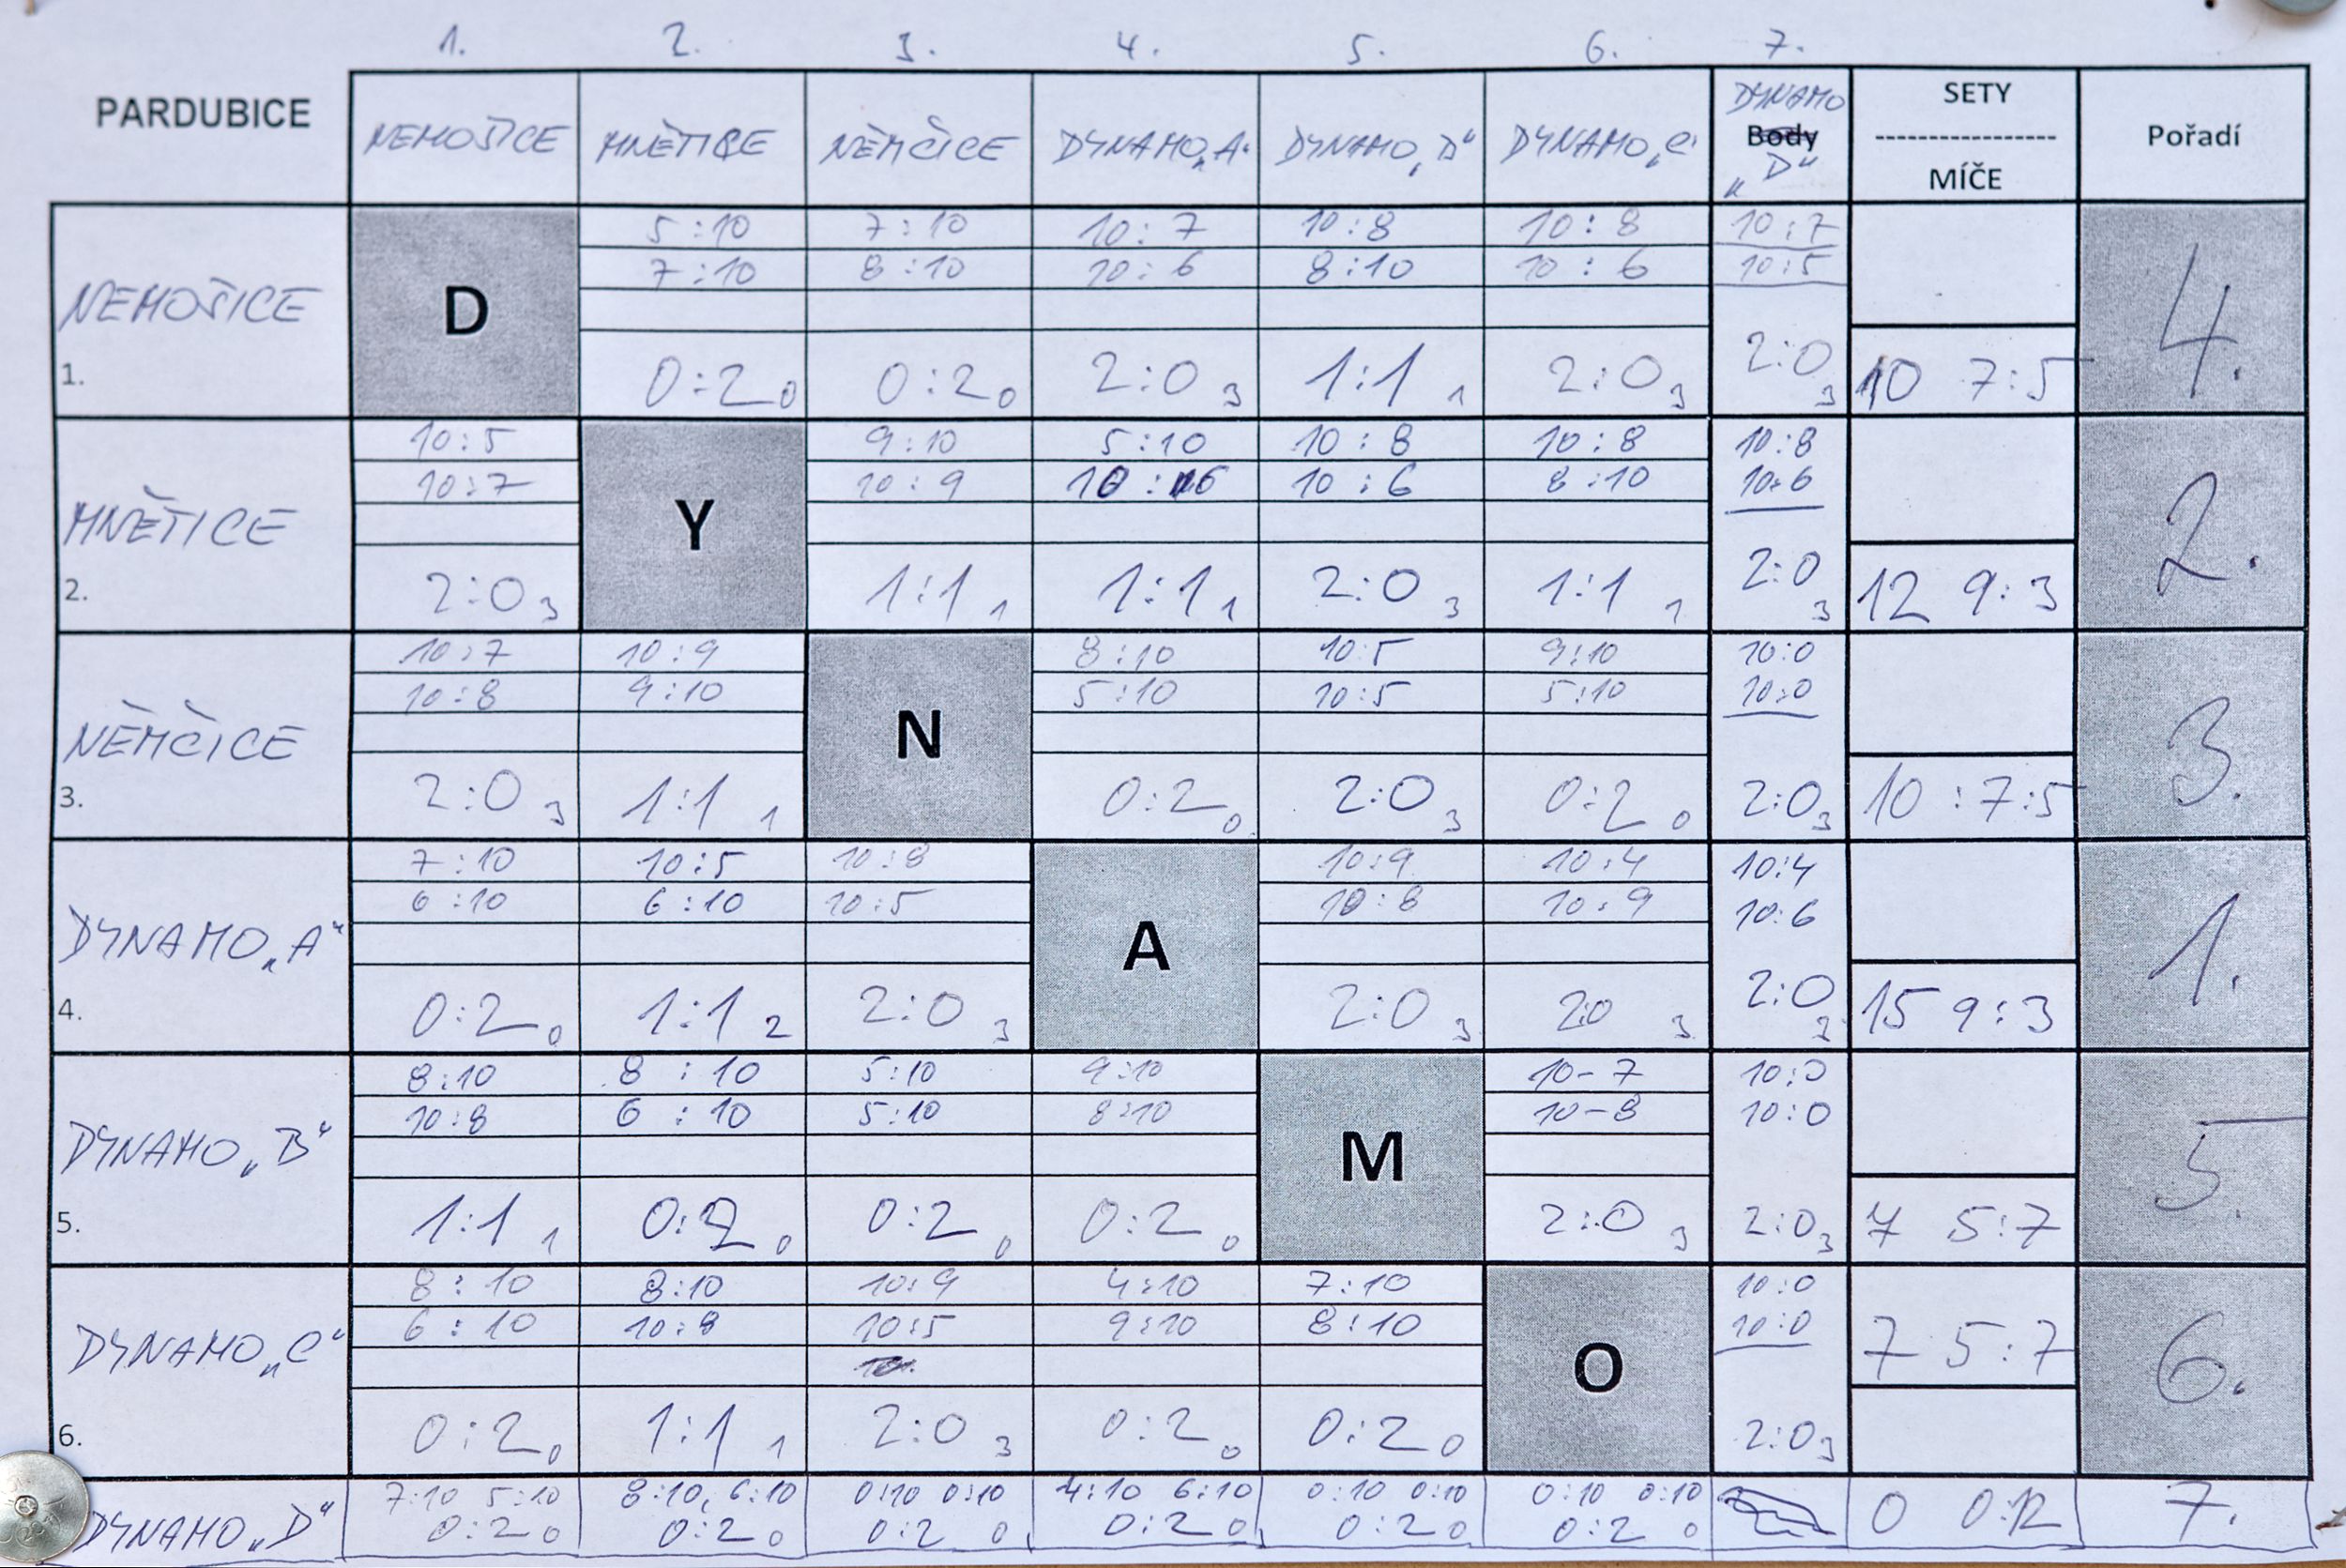 1. 2. 3. 4. 5. 6. 7.
PARDUBICE NEMOŠICE MNĚTICE NĚMČICE DYNAMO „A“ DYNAMO „B“ DYNAMO „C“ DYNAMO Body „D“ SETY MÍČE Pořadí
5:10 7:10 10:7 10:8 10:8 10:7
7:10 8:10 10:6 8:10 10:6 10:5
NEMOŠICE D 4.
1. 0:2 0 0:2 0 2:0 3 1:1 1 2:0 3 2:0 3 10 7:5
10:5 9:10 5:10 10:8 10:8 10:8
10:7 10:9 10:6 10:6 8:10 10:6
MNĚTICE Y 2.
2. 2:0 3 1:1 1 1:1 1 2:0 3 1:1 1 2:0 3 12 9:3
10:7 10:9 8:10 10:5 9:10 10:0
10:8 9:10 5:10 10:5 5:10 10:0
NĚMČICE N 3.
3. 2:0 3 1:1 1 0:2 0 2:0 3 0:2 0 2:0 3 10 :7:5
7:10 10:5 10:8 10:9 10:4 10:4
6:10 6:10 10:5 10:8 10:9 10:6
DYNAMO „A“ A 1.
4. 0:2 0 1:1 2 2:0 3 2:0 3 2:0 3 2:0 3 15 9:3
8:10 8:10 5:10 9:10 10-7 10:0
10:8 6:10 5:10 8:10 10-8 10:0
DYNAMO „B“ M 5.
5. 1:1 1 0:2 0 0:2 0 0:2 0 2:0 3 2:0 3 7 5:7
8:10 8:10 10:9 4:10 7:10 10:0
6:10 10:8 10:5 9:10 8:10 10:0
DYNAMO „C“ O 7 5:7 6.
6. 0:2 0 1:1 1 2:0 3 0:2 0 0:2 0 2:0 3
7:10 5:10 8:10, 6:10 0:10 0:10 4:10 6:10 0:10 0:10 0:10 0:10
DYNAMO „D“ 0:2 0 0:2 0 0:2 0 0:2 0 0:2 0 0:2 0 0 0:12 7.